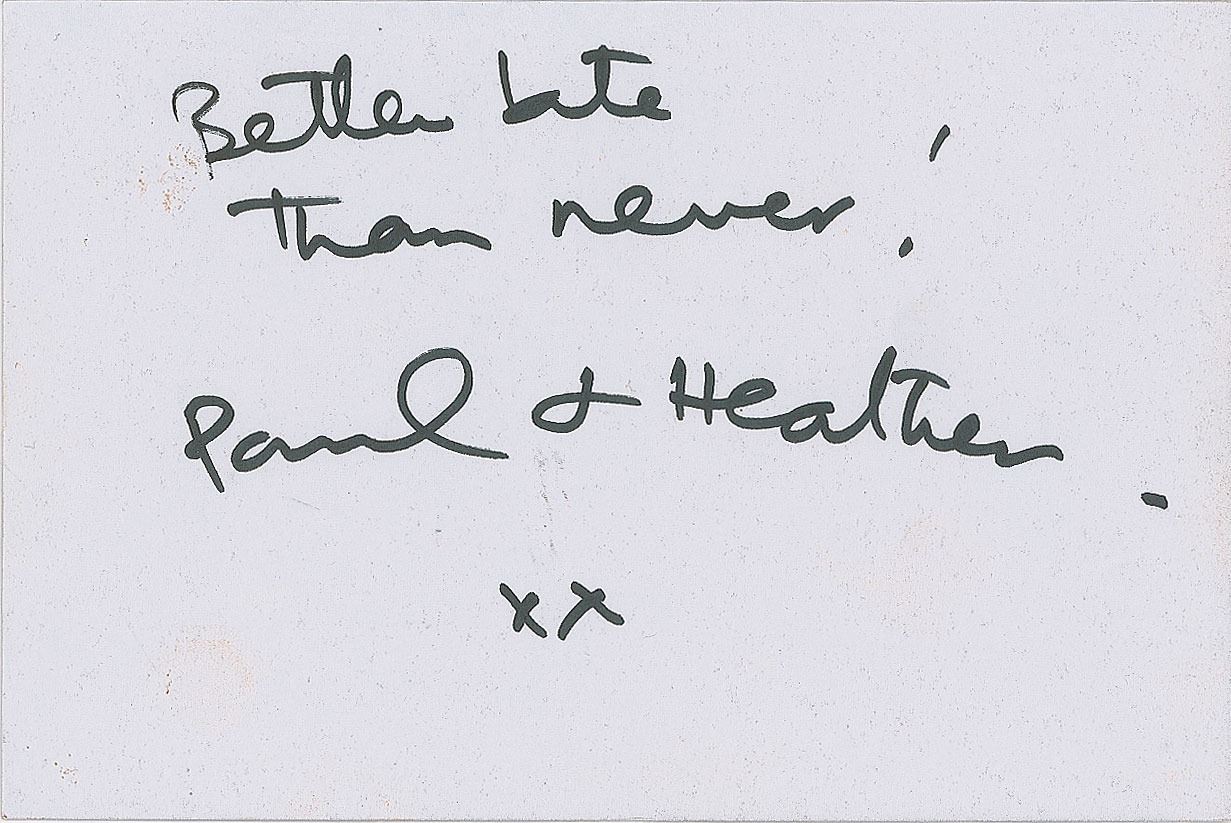 Better late
than never!
Paul & Heather -
xx